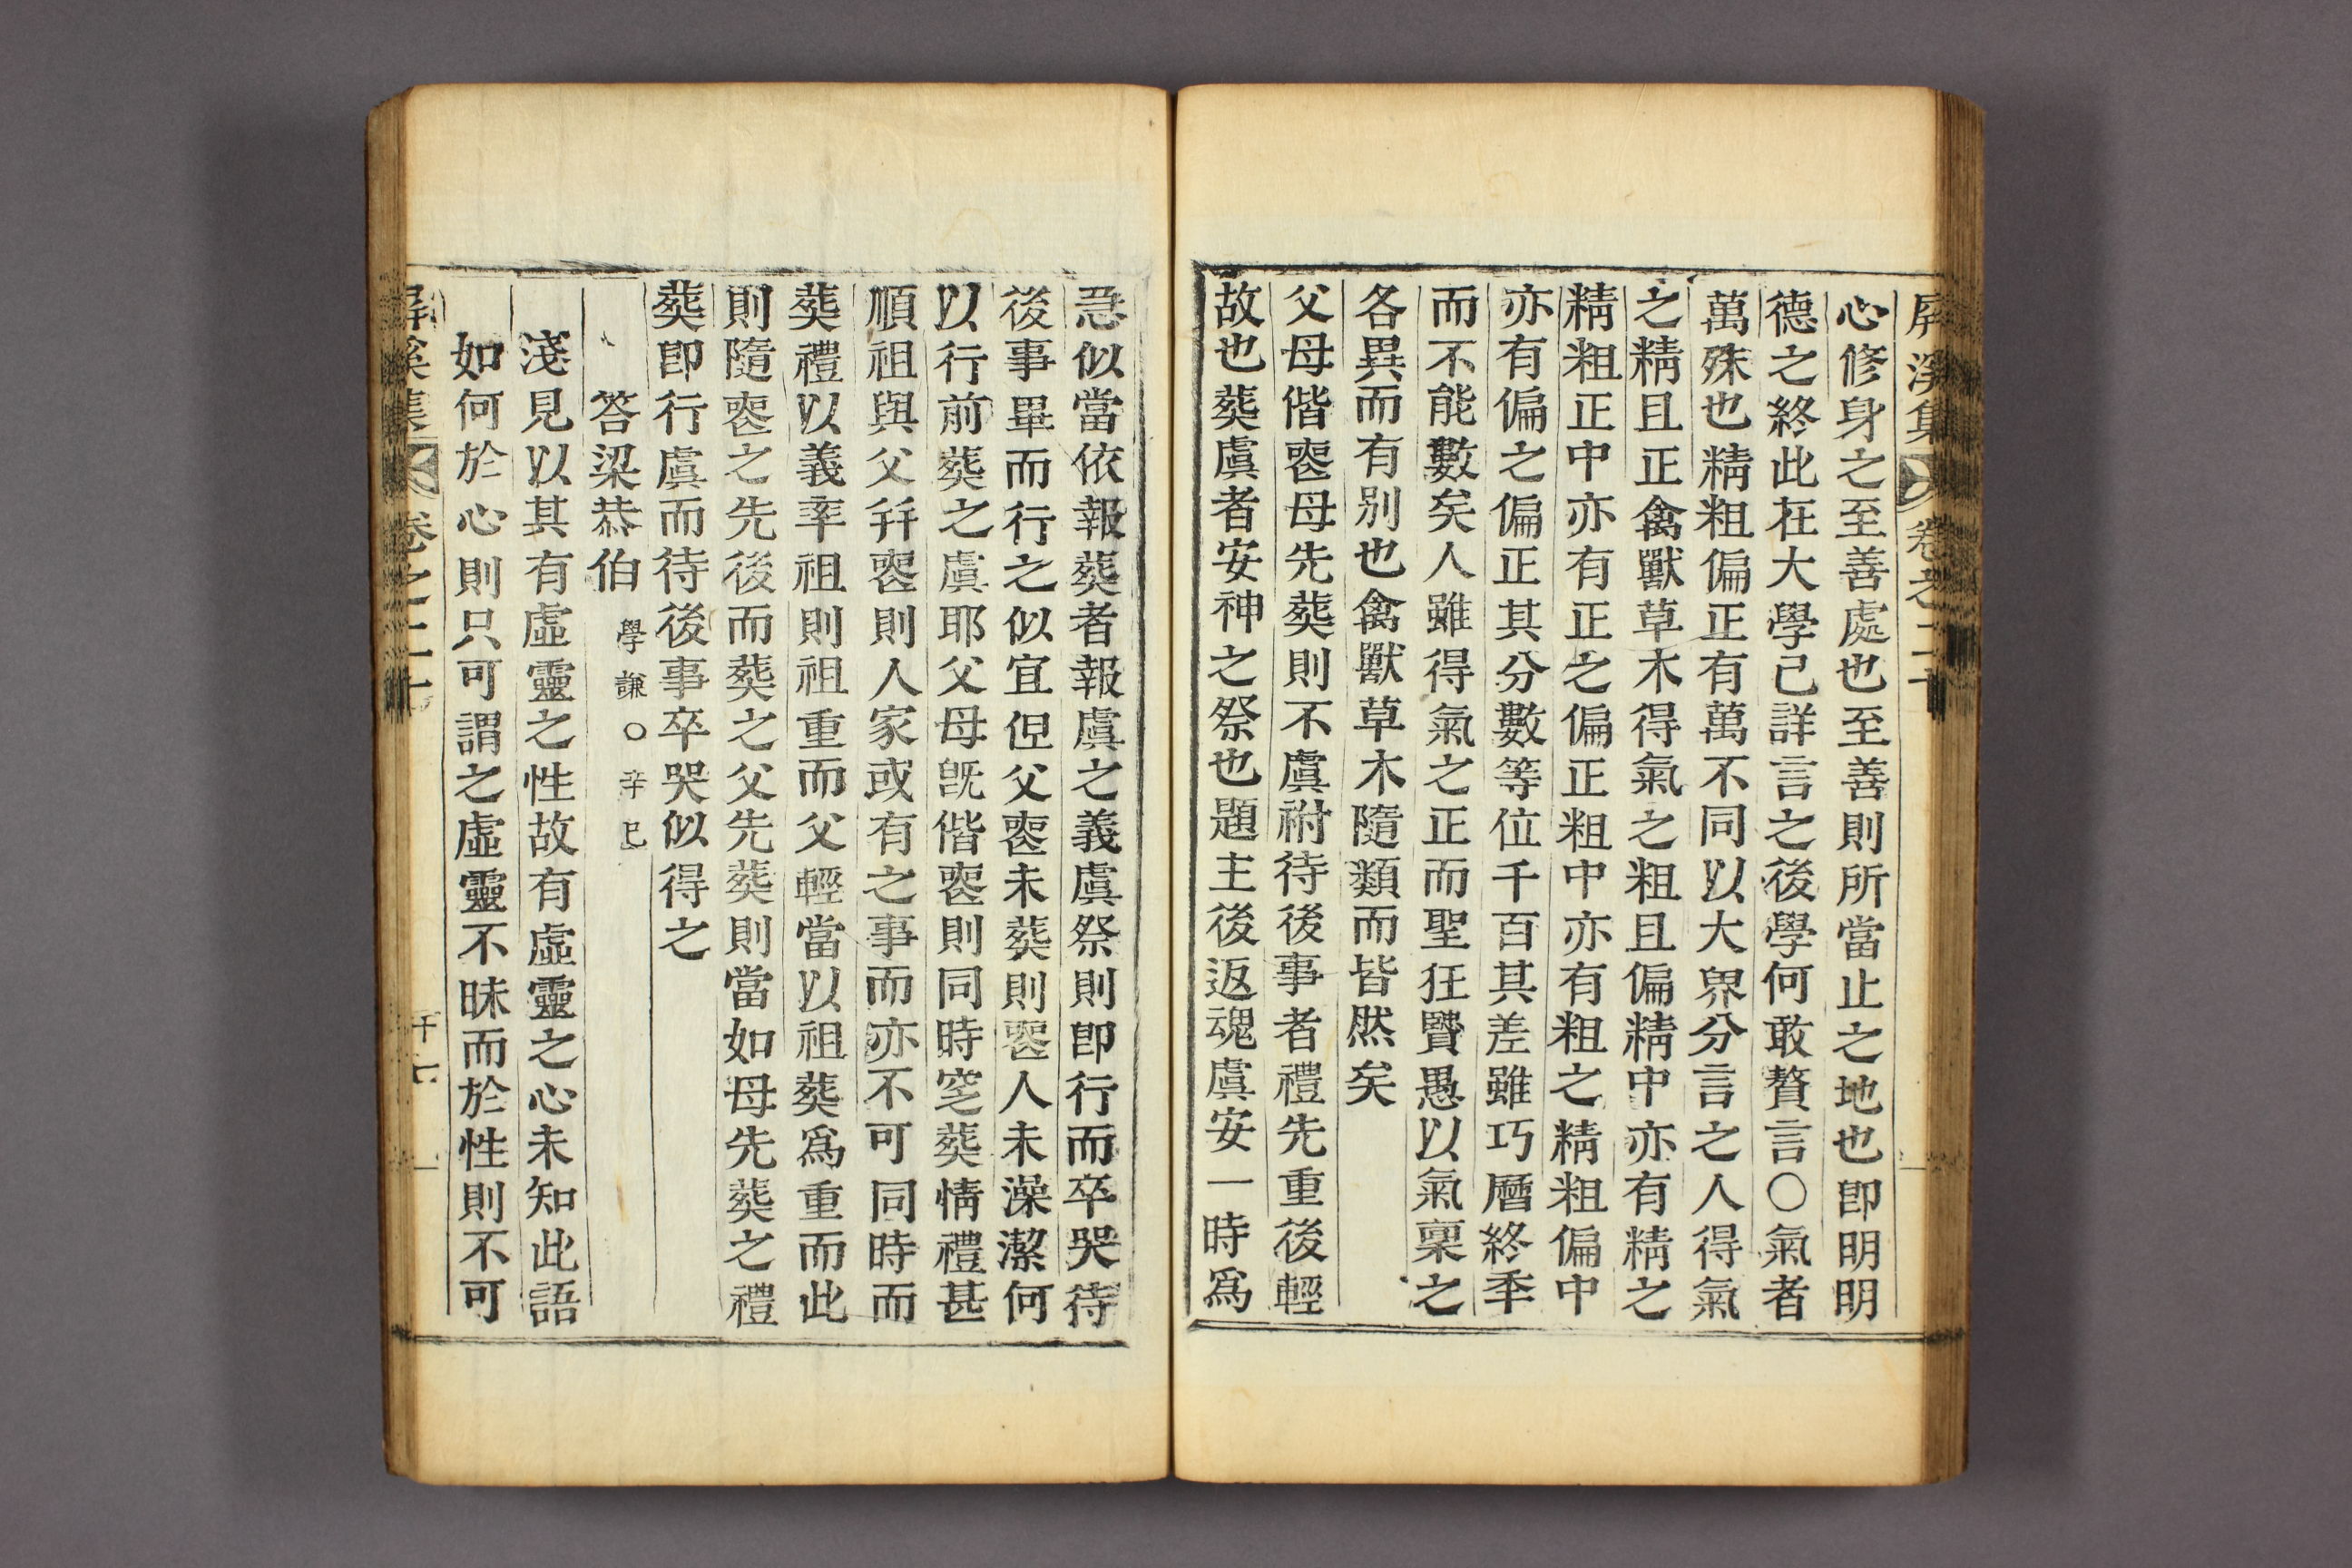 屛溪集 卷之二十
心修身之至善處也至善則所當止之地也卽明明
德之終此在大學已詳言之後學何敢贅言○氣者
萬殊也精粗偏正有萬不同以大界分言之人得氣
之精且正禽獸草木得氣之粗且偏精中亦有精之
精粗正中亦有正之偏正粗中亦有粗之精粗偏中
亦有偏之偏正其分數等位千百其差雖巧曆終秊
而不能數矣人雖得氣之正而聖狂賢愚以氣稟之
各異而有別也禽獸草木隨類而皆然矣
父母偕喪母先葬則不虞祔待後事者禮先重後輕
故也葬虞者安神之祭也題主後返魂虞安一時爲
急似當依報葬者報虞之義虞祭則卽行而卒哭待
後事畢而行之似宜但父喪未葬則喪人未澡潔何
以行前葬之虞耶父母旣偕喪則同時窆葬情禮甚
順祖與父幷喪則人家或有之事而亦不可同時而
葬禮以義率祖則祖重而父輕當以祖葬爲重而此
則隨喪之先後而葬之父先葬則當如母先葬之禮
葬卽行虞而待後事卒哭似得之
答梁恭伯 學謙○辛巳
淺見以其有虛靈之性故有虛靈之心未知此語
如何於心則只可謂之虛靈不昧而於性則不可
屛溪集 卷之二十 十七